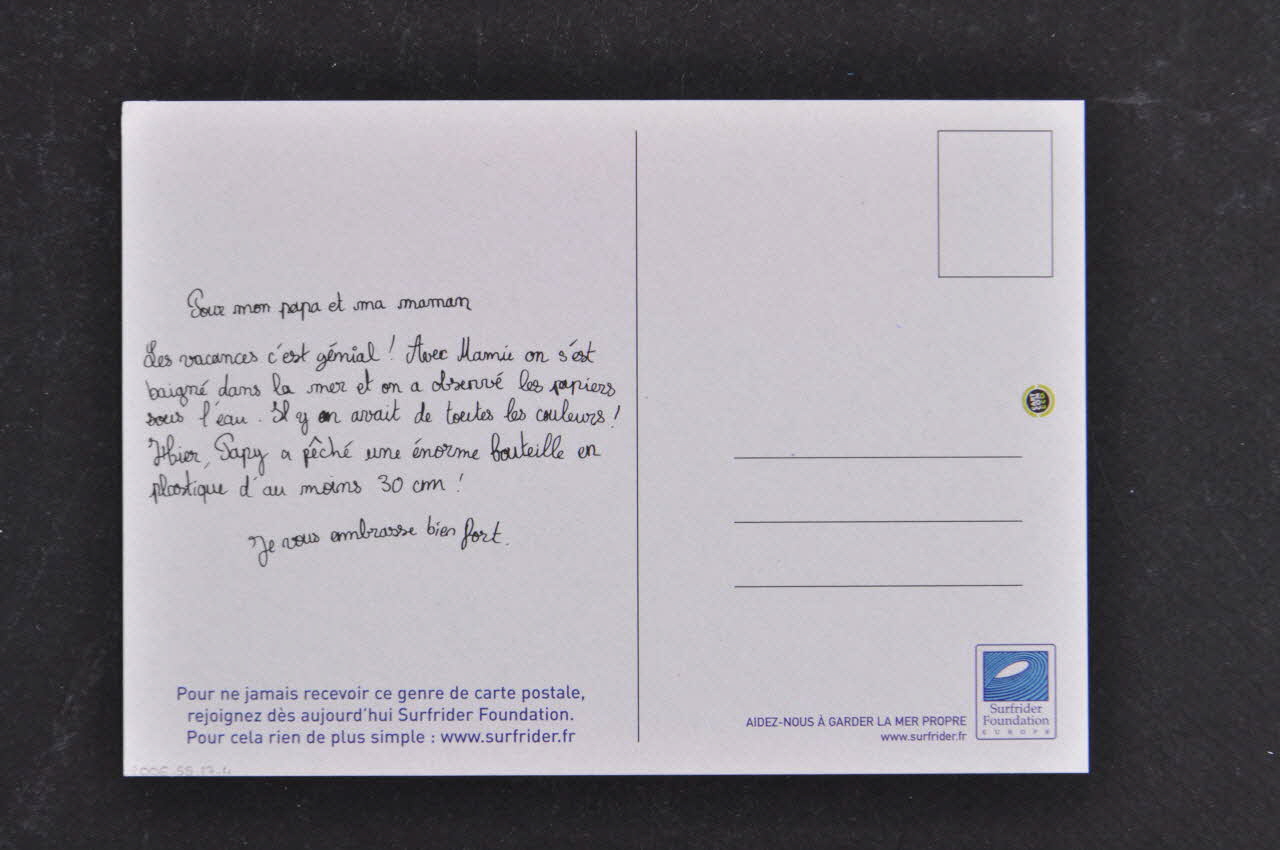 Pour mon papa et ma maman
Les vacances c'est génial ! Avec Mamie on s'est
baigné dans la mer et on a observé les papiers
sous l'eau. Il y en avait de toutes les couleurs !
Hier, Papy a pêché une énorme bouteille en
plastique d'au moins 30 cm !
Je vous embrasse bien fort.
Pour ne jamais recevoir ce genre de carte postale,
rejoignez dès aujourd'hui Surfrider Foundation.
Pour cela rien de plus simple : www.surfrider.fr
AIDEZ-NOUS À GARDER LA MER PROPRE
www.surfrider.fr
Surfrider
Foundation
EUROPE